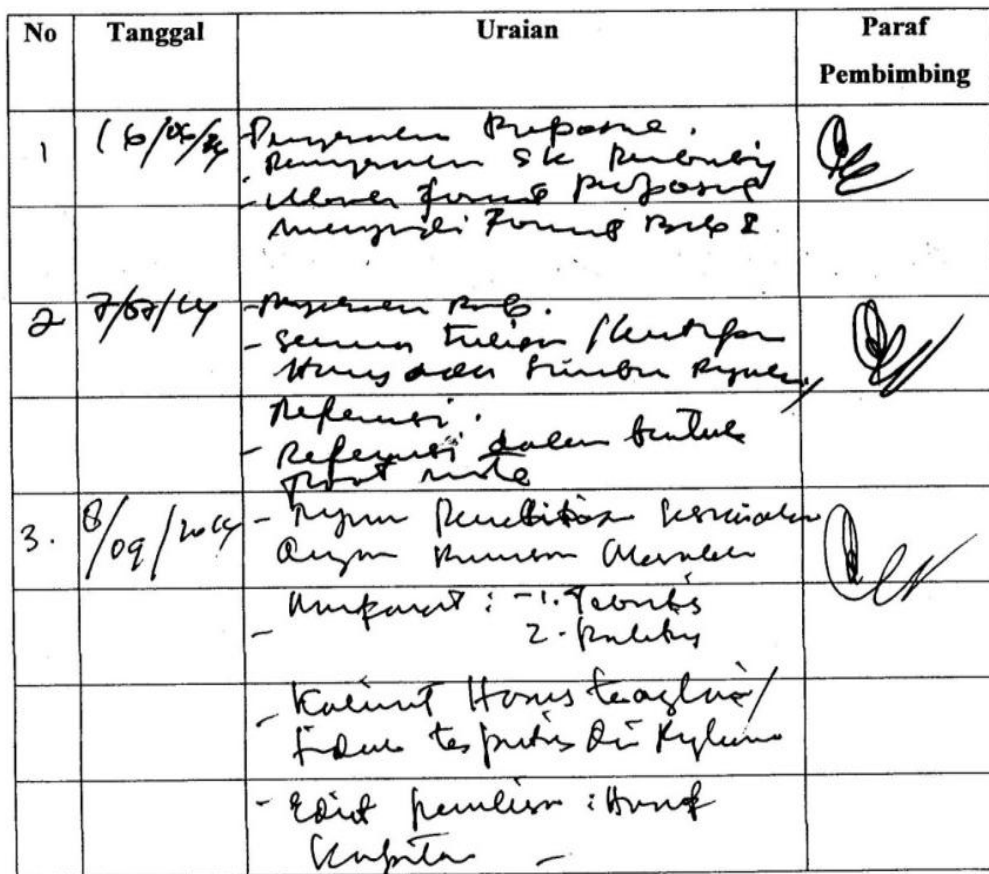 No Tanggal Uraian Paraf
Pembimbing
1 16/06/24 Penyerahan Proposal.
Penyerahan SK Pembimbing
- format proposal
menjadi Format Bab I
2 7/07/24 - Bab.
- Semua tulisan / kutipan
Harus ada Sumber
Referensi.
- Referensi dalam bentuk
foot note
3. 8/09/2024 - Tujuan Penelitian sesuaikan
dengan Rumusan Masalah
- Manfaat : - 1. Teoritis
2. Praktis
- Kalimat Harus
tidak terputus di
- Edit penulisan : Huruf
Kapital -